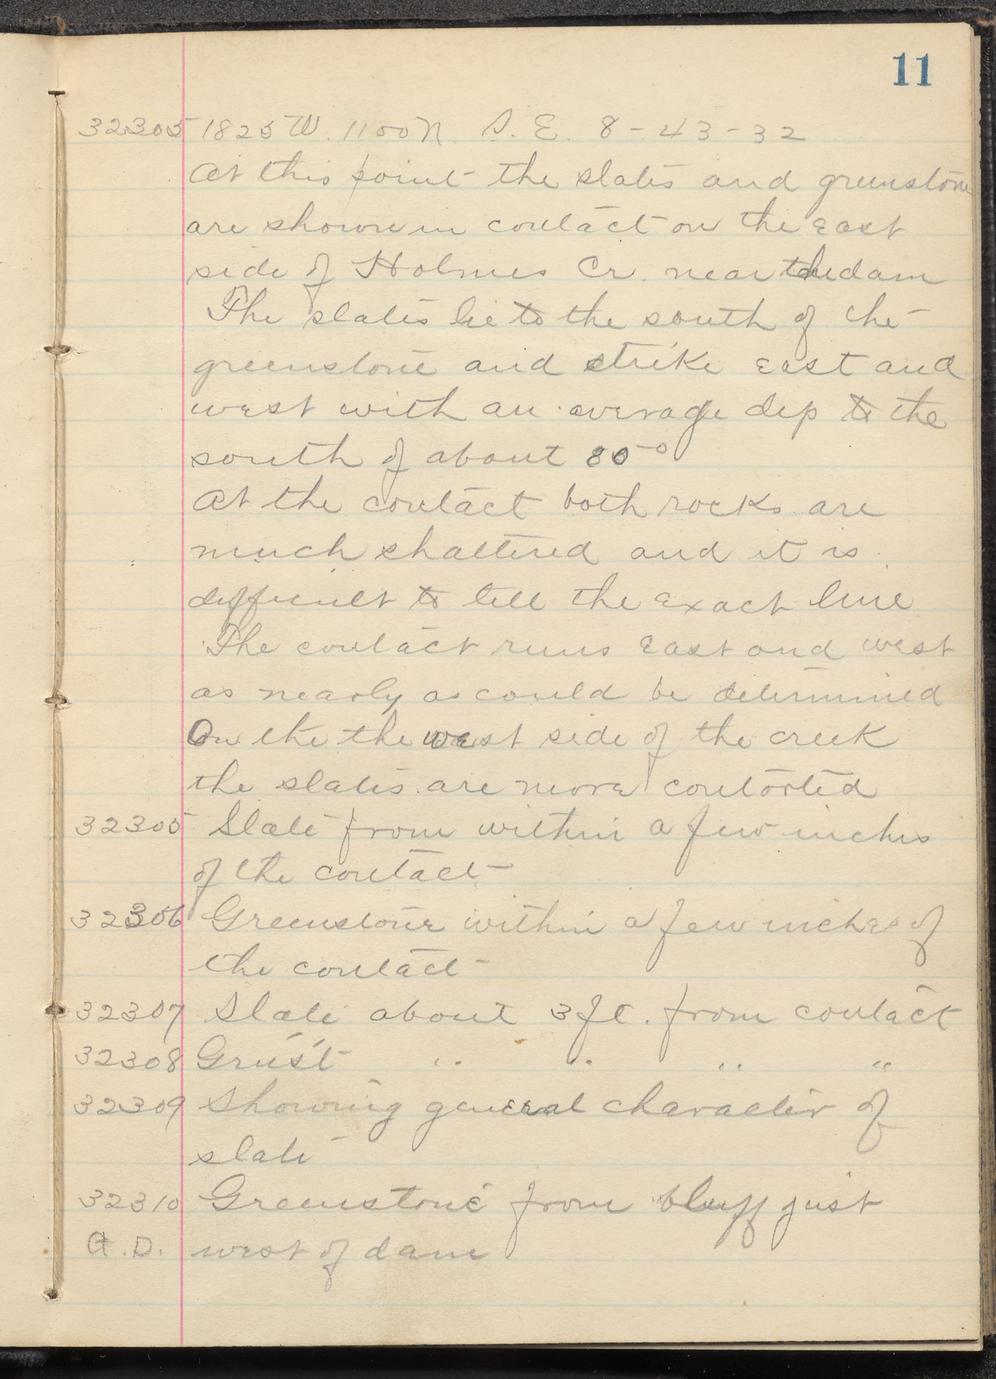 11
32305 1825 W. 1100 N S.E. 8-43-32
At this point the slates and greenstone
are shown in contact on the East
side of Holmes Cr. near the dam
The slates lie to the south of the
greenstone and strike east and
west with an average dip to the
south of about 80°
At the contact both rocks are
much shattered and it is
difficult to tell the exact line
The contact runs East and west
as nearly as could be determined
On the the west side of the creek
the slates are more contorted
32305 Slate from within a few inches
of the contact
32306 Greenstone within a few inches of
the contact
32307 Slate about 3 ft. from contact
32308 Grn'st " " " "
32309 Showing general character of
slate
32310 Greenstone from bluff just
A.D. west of dam